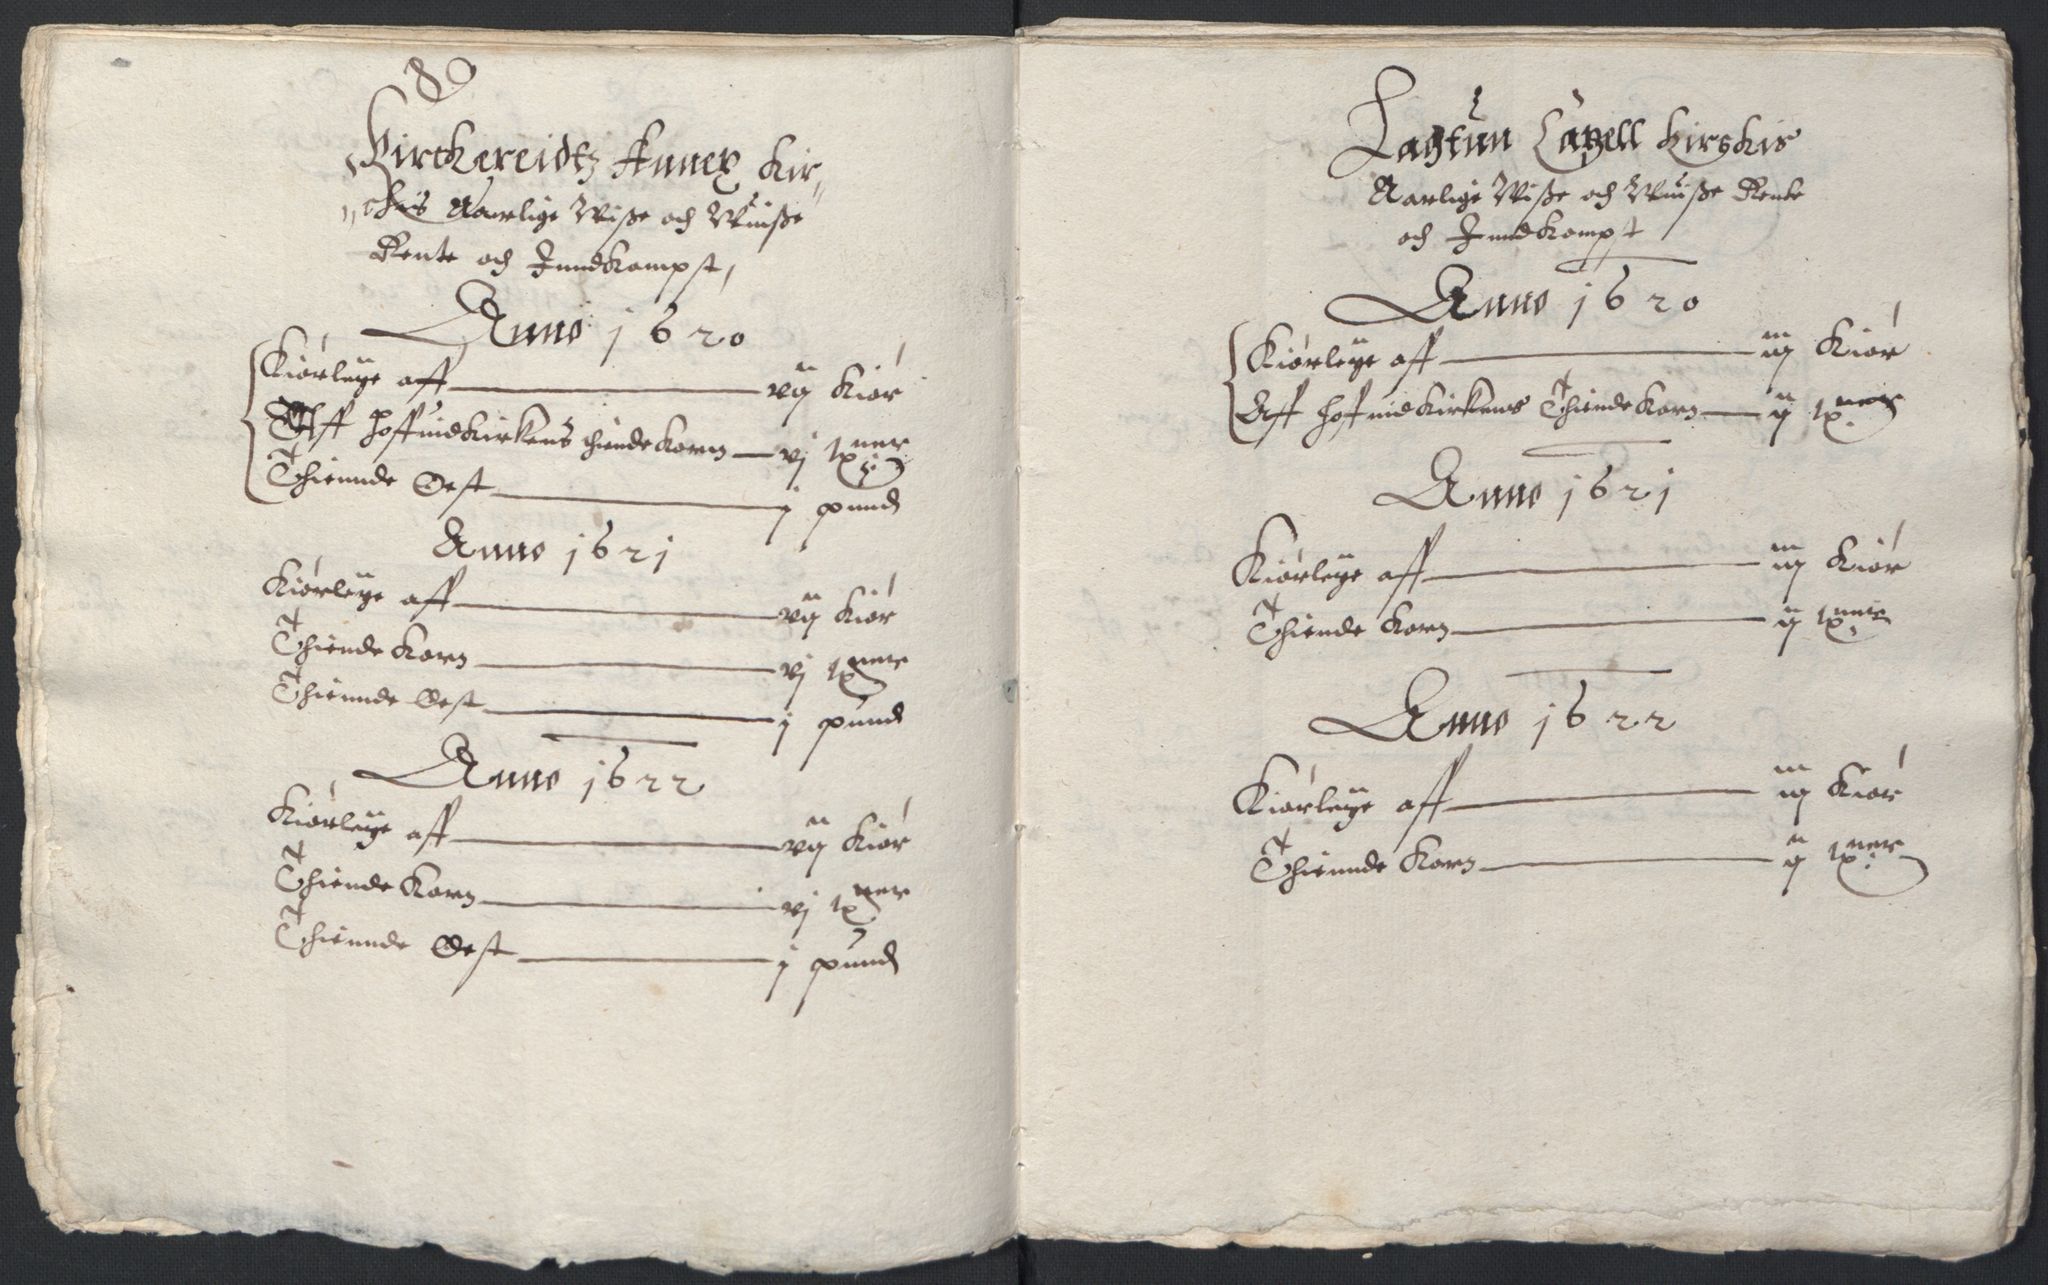 Birckereidtz Annex Kir„
„ckis Aarlige Wisse och Wuisse
Rente och Inndkompst,
Anno 1620
Kiørleye aff — vij Kiør
Aff hoffuidkirkens thiendekorn — vj tx ner
Thiennde Oest — j pund
Anno 1621
Kiørleye aff — vij Kiør
Thiende Korn — vj tx ner
Thiennde Oest — j pund
Anno 1622
Kiørleye aff — vij Kiør
Thiende Korn — vj tx ner
Thiennde Oest — j pund
Capell Kirchis
Aarlige Wisse och Wuisse Rente
och Inndkompst
Anno 1620
Kiørleye aff — iij Kiør
Aff hoffuidkirkens Thiende Korn — ij tx ner
Anno 1621
Kiørleye aff — iij Kiør
Thiende Korn — ij tx ner
Anno 1622
Kiørleye aff — iij Kiør
Thiennde Korn — ij tx ner